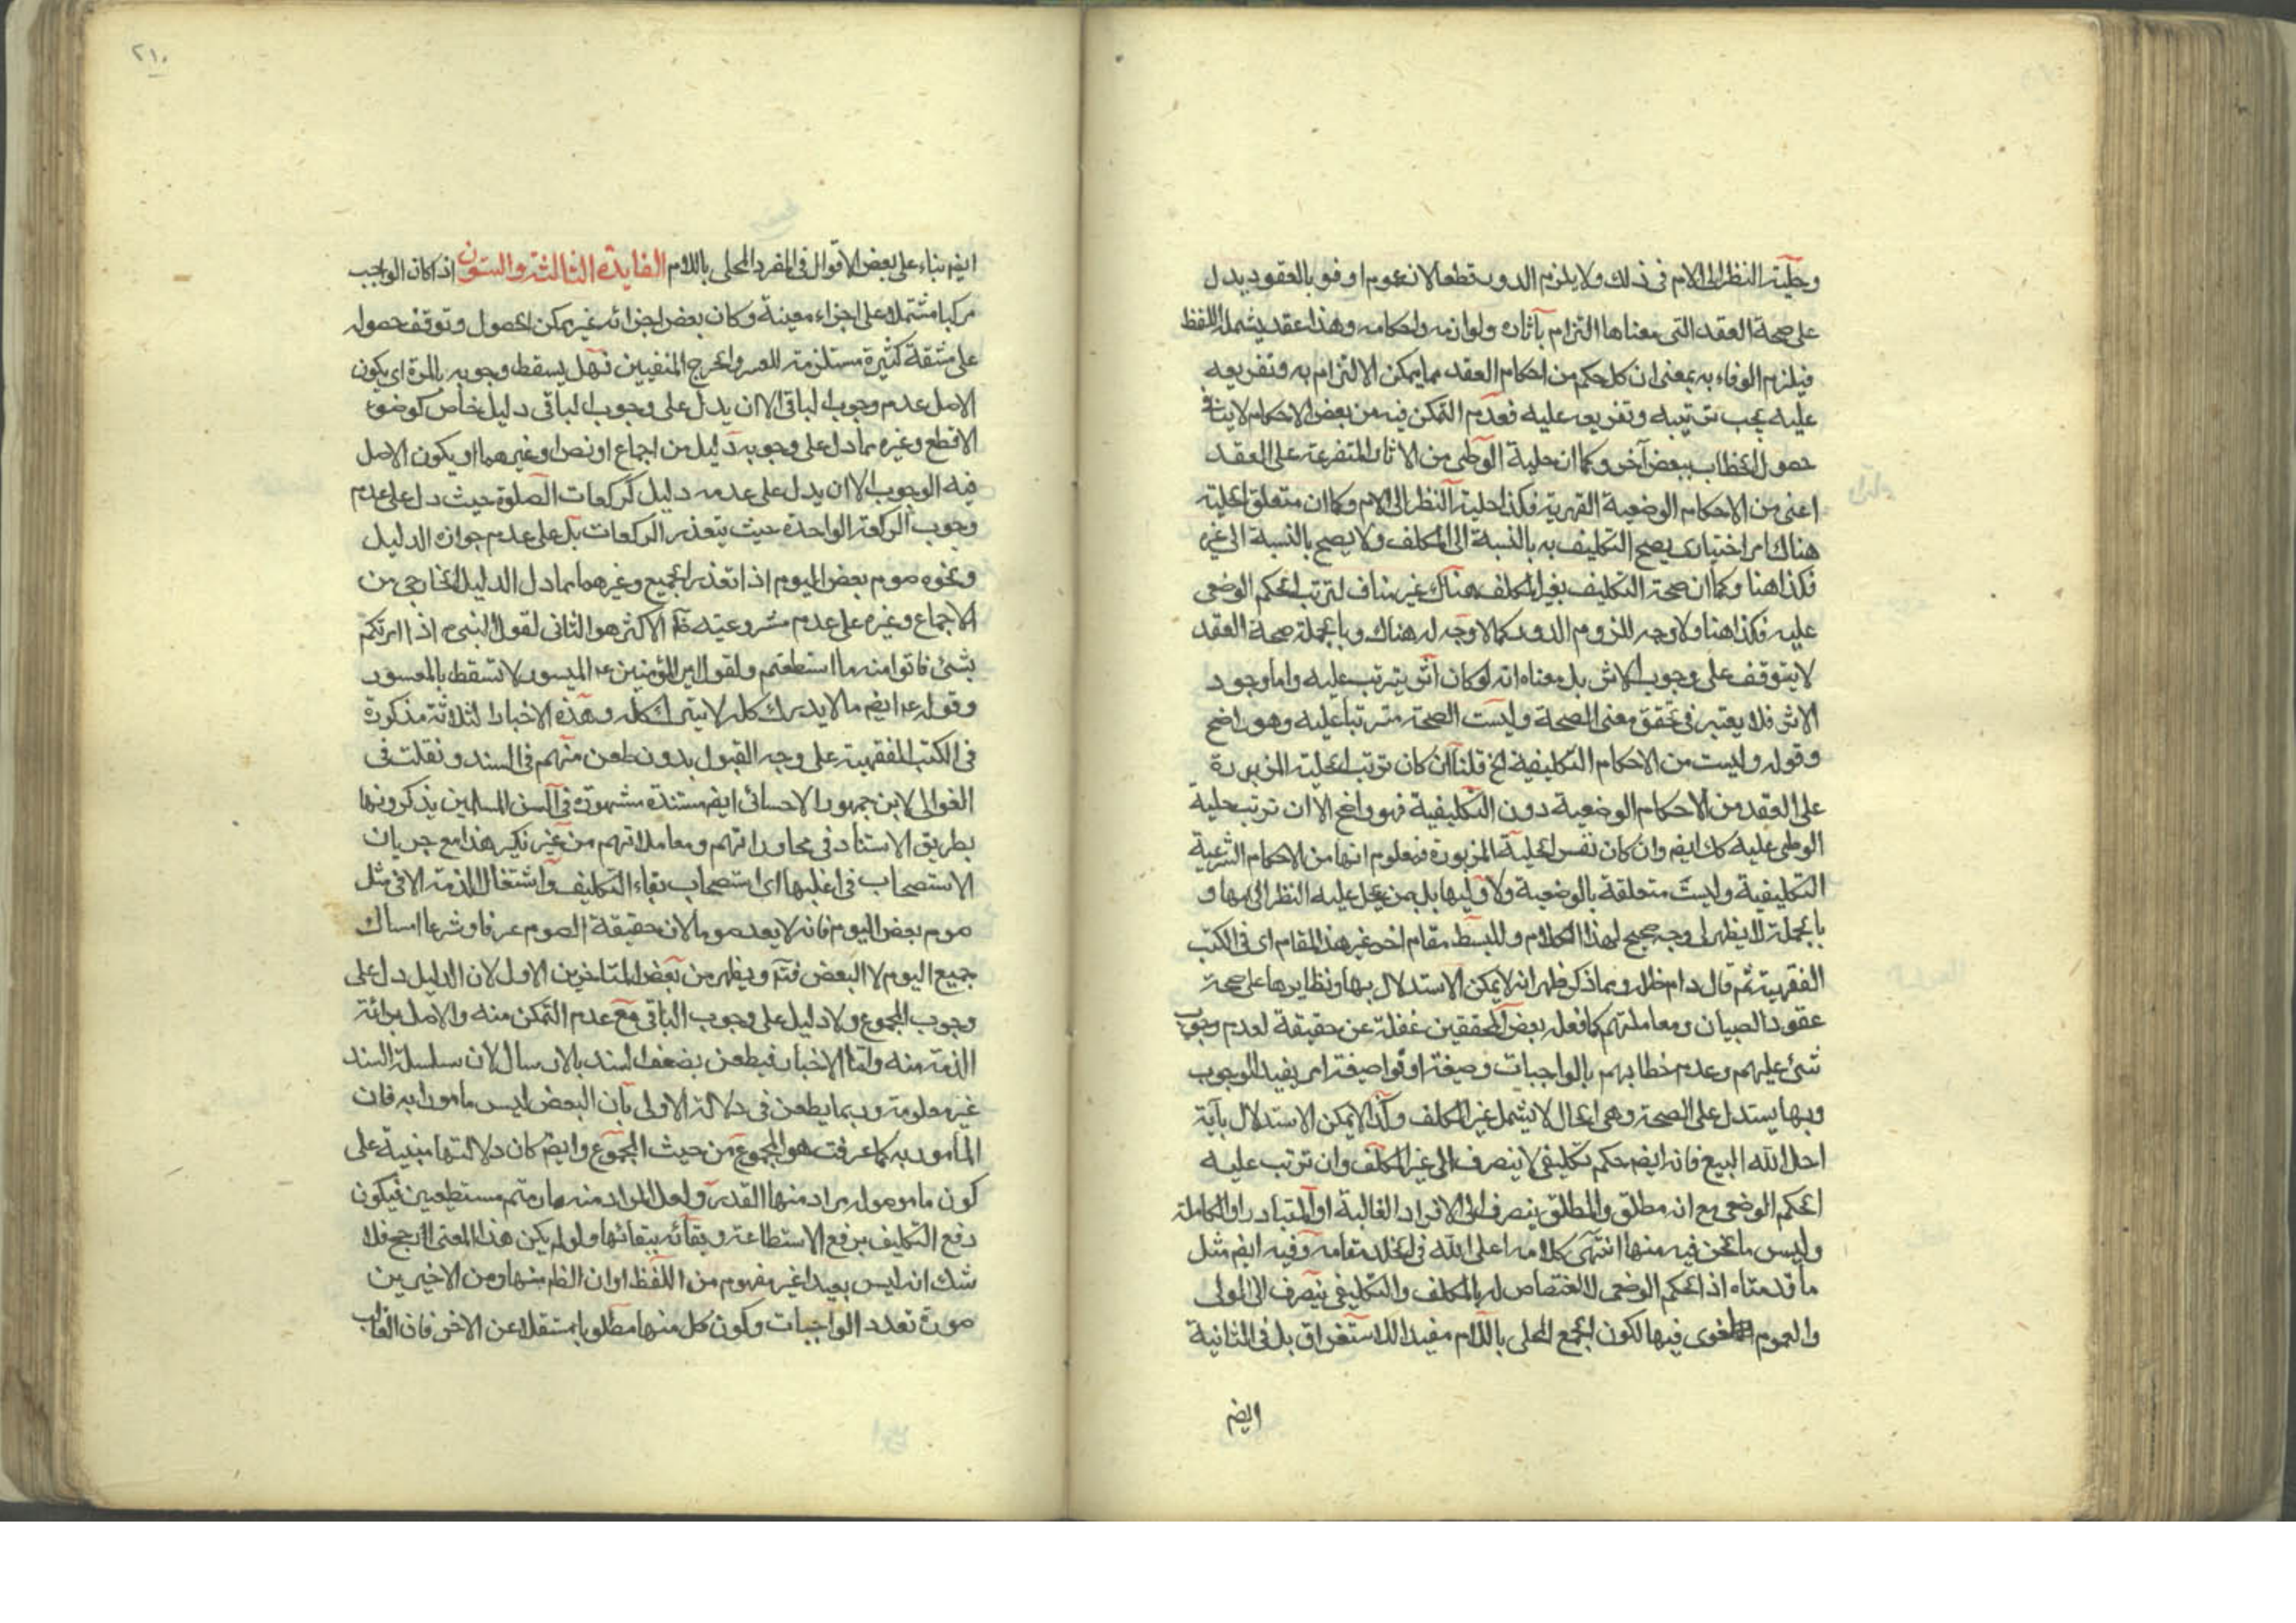 وحلّيته النظر الى الام فى ذلك ولا يلزم الدور قطعا لان عموم اوفو بالعقود يدل
على صحة العقد التى معناها التزام بآثاره ولوازمه واحكامه وهذا عقد يشمله اللفظ
فيلزم الوفاء به بمعنى ان كل حكم من احكام العقد مما يمكن الالتزام به وتفريعه
عليه يجب ترتيبه وتفريعه عليه فعدم التمكن فيه من بعض الاحكام لا ينافى
حصول الخطاب ببعض آخر وكما ان حلية الوطى من الاثار المتفرعة على العقد
اعنى من الاحكام الوضعية القهرية فكذا حلية النظر الى الام وكما ان متعلق الحلية
هناك امر اختيارى يصح التكليف به بالنسبة الى المكلف ولا يصح بالنسبة الى غيره
فكذا هنا وكما ان صحة التكليف بغير المكلف هناك غير مناف لترتب الحكم الوضعى
عليه فكذا هنا ولا وجه للزوم الدور كما لا وجه له هناك وبالجملة صحة العقد
لا يتوقف على وجوب الاثر بل معناه انه لو كان اثر يترتب عليه واما وجود
الاثر فلا يعتبر فى تحقق معنى الصحة وليست الصحة مترتبا عليه وهو واضح
وقوله وليست من الاحكام التكليفية الخ قلنا ان كان ترتب الحلية المزبورة
على العقد من الاحكام الوضعية دون التكليفية فهو واضح الا ان ترتب حلية
الوطى عليه كك ايضم وان كان نفس الحلية المزبورة فمعلوم انها من الاحكام الشرعية
التكليفية وليست متعلقة بالوضعية ولا وليها بل بمن يحل عليه النظر الى مها و
بالجملة لا يظهر لى وجه صحيح لهذا الكلام وللبسط مقام اخر غير هذا المقام اى فى الكتب
الفقهية ثم قال دام ظله وبما ذكر ظهر انه لا يمكن الاستدلال بها ونظايرها على صحة
عقود الصبيان ومعاملتهم كما فعله بعض المحققين غفلة عن حقيقة لعدم وجوب
شئ عليهم وعدم خطابهم بالواجبات وصيغة اوفوا صيغة امر يفيد الوجوب
وبها يستدل على الصحة وهى الحال لا يشمل غير المكلف وكذا لا يمكن الاستدلال بآية
احل الله البيع فانه ايضم حكم تكليفى لا ينصرف الى غير المكلف وان ترتب عليه
الحكم الوضعى مع انه مطلق والمطلق ينصرف الى الافراد الغالبة او المتبادر او الكاملة
وليس ما نحن فيه منها انتهى كلامه اعلى الله فى الخلد مقامه وفيه ايضم مثل
ما قدمناه اذ الحكم الوضعى لا اختصاص له بالمكلف والتكليفى ينصرف الى المولى
والعموم اللغوى فيها لكون الجمع المحلى باللام مفيدا للاستغراق بل فى الثانية
ايضم
٢١٠
ايضم بناء على بعض الاقوال فى المفرد المحلى باللام الفايدة الثالثة والستون اذا كان الواجب
مركبا مشتملا على اجزاء معينة وكان بعض اجزائه غير ممكن الحصول وتوقف حصوله
على مشقة كثيرة مستلزمة للعسر والحرج المنفيين فهل يسقط وجوبه بالمرة اى يكون
الاصل عدم وجوب الباقى الا ان يدل على وجوب الباقى دليل خاص كوضوء
الاقطع وغيره مما دل على وجوبه دليل من اجماع او نص او غيرهما او يكون الاصل
فيه الوجوب الا ان يدل على عدمه دليل كركعات الصلوة حيث دل على عدم
وجوب الركعة الواحدة حيث يتعذر الركعات بل على عدم جوازه الدليل
ونحوه صوم بعض اليوم اذا تعذر الجميع وغيرهما مما دل الدليل الخارجى من
الاجماع وغيره على عدم مشروعيته الاكثر هو الثانى لقول النبى ص اذا امرتكم
بشئ فاتوا منه ما استطعتم ولقول امير المؤمنين عه الميسور لا تسقط بالمعسور
وقوله عه ايضم ما لا يدرك كله لا يترك كله وهذه الاخبار الثلاثة مذكورة
فى الكتب الفقهية على وجه القبول بدون طعن منهم فى السند ونقلت فى
الغوالى لابن جمهور الاحسائى ايضم مستندة مشهورة فى السن المسلمين يذكرونها
بطريق الاستناد فى محاوراتهم ومعاملاتهم من غير نكير هذا مع جريان
الاستصحاب فى اغلبها اى استصحاب بقاء التكليف واشتغال الذمة الا فى مثل
صوم بعض اليوم فانه لا يعد صوما لان حقيقة الصوم عرفا وشرعا امساك
جميع اليوم لا البعض فتم ويظهر من بعض المتاخرين الاول لان الدليل دل على
وجوب المجموع ولا دليل على وجوب الباقى مع عدم التمكن منه والاصل برائة
الذمة منه واما الاخبار فيطعن بضعف السند بالارسال لان سلسلة السند
غير معلومة وربما يطعن فى دلالة الاولى بان البعض ليس مامورا به فان
المأمور به كما عرفت هو المجموع من حيث المجموع وايضم كان دلالتها مبنية على
كون ما موصولة يراد منها القدر ولعل المراد منه ما دمتم مستطيعين فيكون
رفع التكليف برفع الاستطاعة وبقائه ببقائها ولو لم يكن هذا المعنى ارجح فلا
شك انه ليس بعيدا غير مفهوم من اللفظ او ان الظم منها ومن الاخيرين
صورة تعدد الواجبات وكون كل منها مطلوبا مستقلا عن الاخر فان الغالب